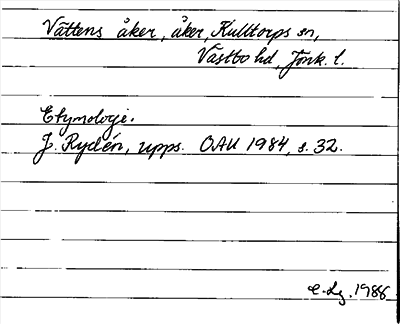 Vättens åker, åker, Kulltorps sn,
Västbo hd, Jönk. l.
Etymologi.
J. Rydén, upps. OAU 1984, s. 32.
1988